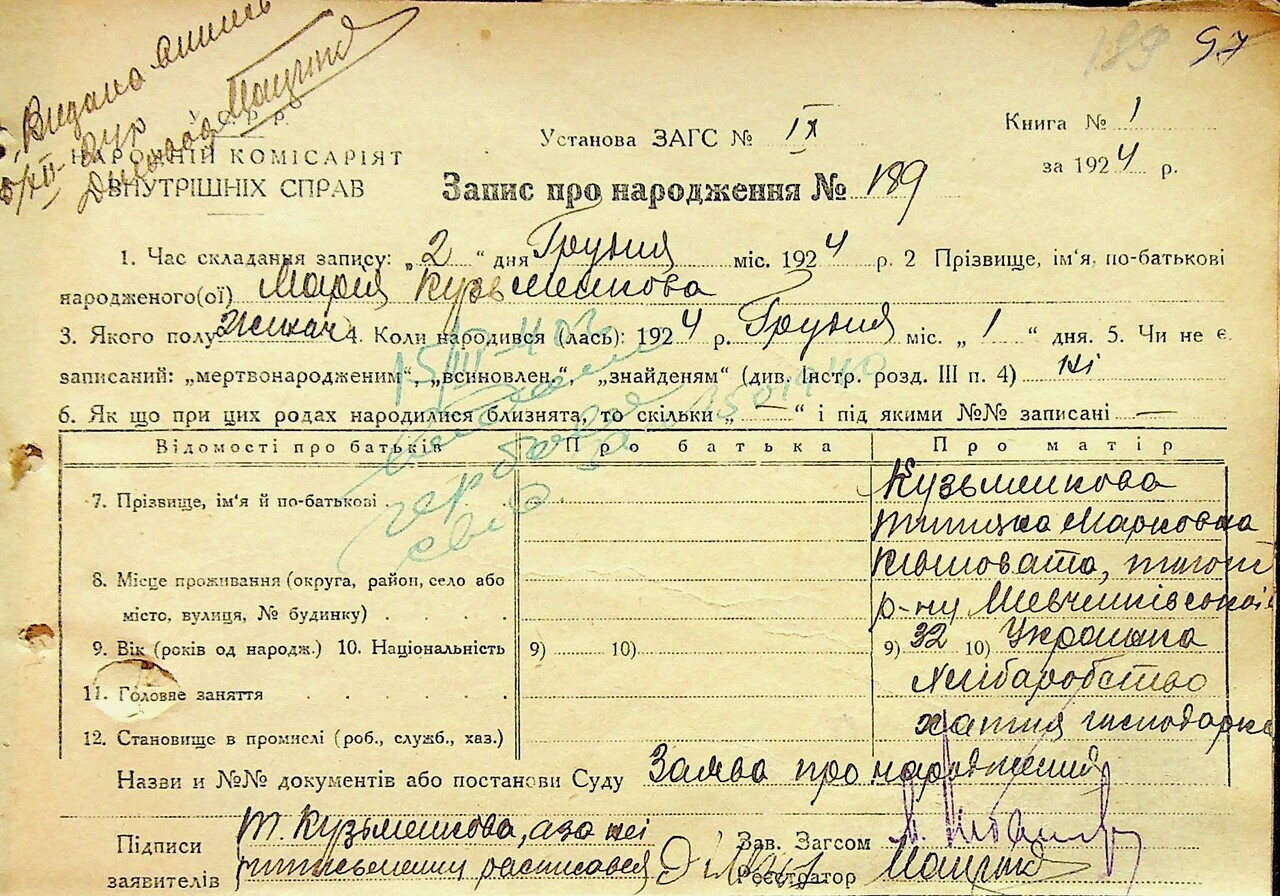 Видано
У. С. Р. Р.
НАРОДНІЙ КОМІСАРІЯТ
ВНУТРІШНІХ СПРАВ
189 97
Установа ЗАГС № IX
Книга № 1
за 1924 р.
Запис про народження № 189
1. Час складання запису: „2“ дня Грудня міс. 1924 р. 2 Прізвище, ім'я, по-батькові
народженого(ої) Марія Кузьменкова
3. Якого полу жіноч 4. Коли народився (лась): 1924 р. Грудня міс. „1“ дня. 5. Чи не є
записаний: „мертвонародженим“, „всиновлен.“, „знайденям“ (див. Інстр. розд. III п. 4) ні
6. Як що при цих родах народилися близнята, то скільки „—“ і під якими №№ записані —
Відомості про батьків Про батька Про матір
7. Прізвище, ім'я й по-батькові Кузьменкова
Марковна
8. Місце проживання (округа, район, село або
місто, вулиця, № будинку) р-ну Шевченківської
9. Вік (років од народж.) 10. Національність 9) 10) 9) 32 10) Українка
11. Головне заняття Хліборобство
12. Становище в промислі (роб., служб., хаз.) хатня господарка
Назви и №№ документів або постанови Суду Заява про народження
Підписи Т. Кузьменкова, а за неї
заявителів расписався
Зав. Загсом
Реєстратор
15/III-40